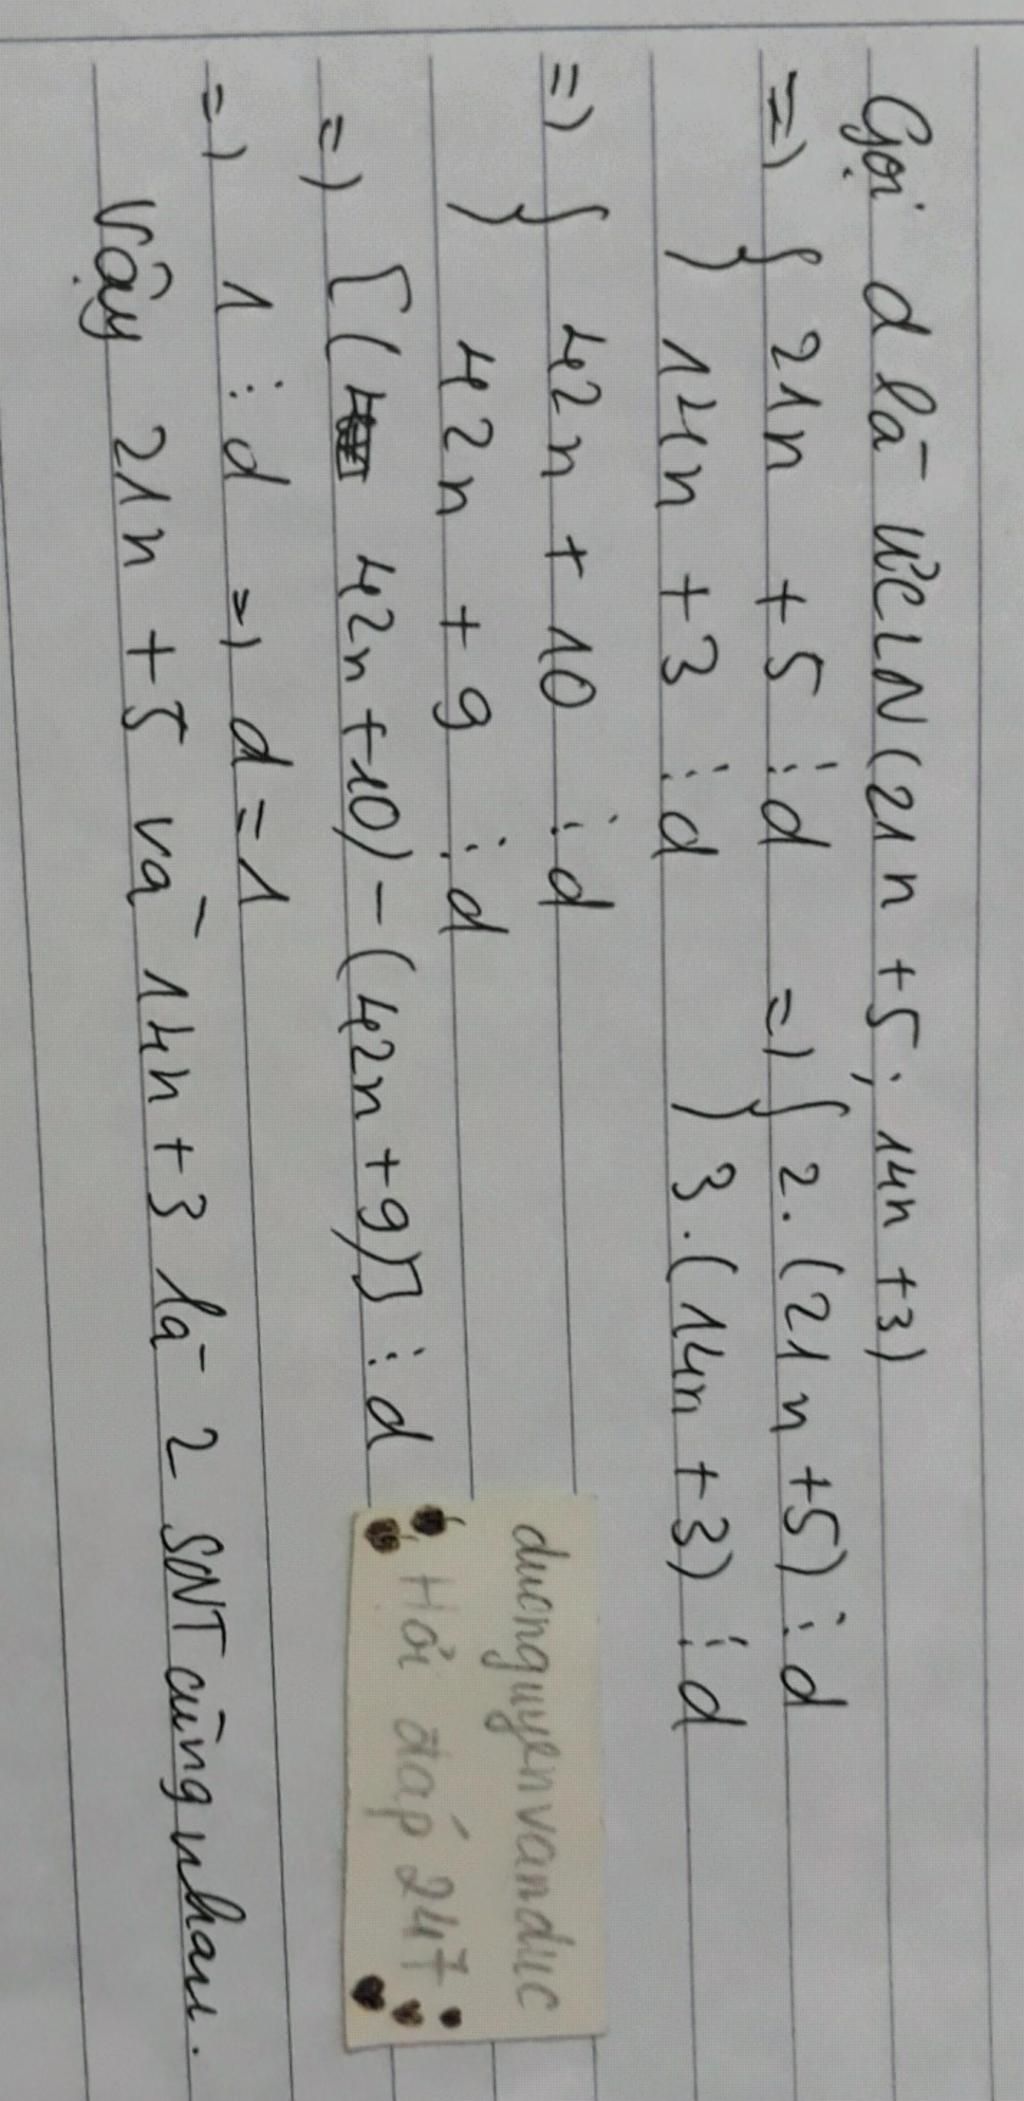 Gọi d là ƯCLN (21n + 5 ; 14n + 3)
=> { 21n + 5 ⋮ d => { 2.(21n + 5) ⋮ d
14n + 3 ⋮ d 3.(14n + 3) ⋮ d
=> { 42n + 10 ⋮ d
42n + 9 ⋮ d
=> [( 42n + 10) - (42n + 9)] ⋮ d
=> 1 ⋮ d => d = 1
Vậy 21n + 5 và 14n + 3 là 2 SNT cùng nhau.
duonguyenvanduc
Hỏi đáp 247